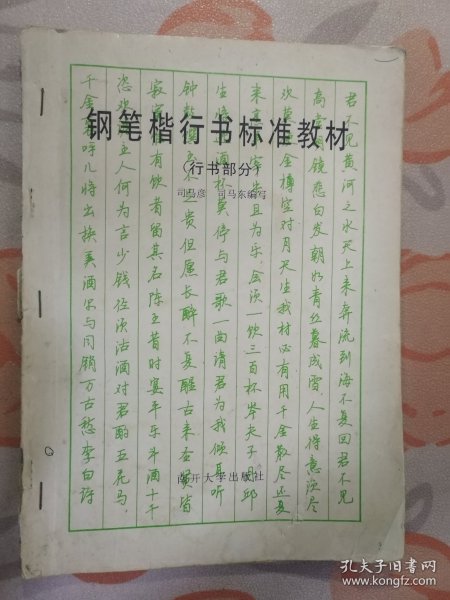 钢笔楷行书标准教材
（行书部分）
司马彦 司马东编写
君不见黄河之水天上来奔流到海不复回君不见
高堂明镜悲白发朝如青丝暮成雪，人生得意须尽
欢莫使金樽空对月天生我材必有用千金散尽还复
来烹羊宰牛且为乐，会须一饮三百杯岑夫子丹邱
生将进酒杯莫停与君歌一曲请君为我倾耳听
钟鼓馔玉不足贵但愿长醉不复醒古来圣贤皆
寂寞惟有饮者留其名陈王昔时宴平乐斗酒十千
恣欢谑主人何为言少钱径须沽酒对君酌五花马，
千金裘呼儿将出换美酒尔与同销万古愁李白诗
南开大学出版社
孔夫子旧书网
www.kongfz.com